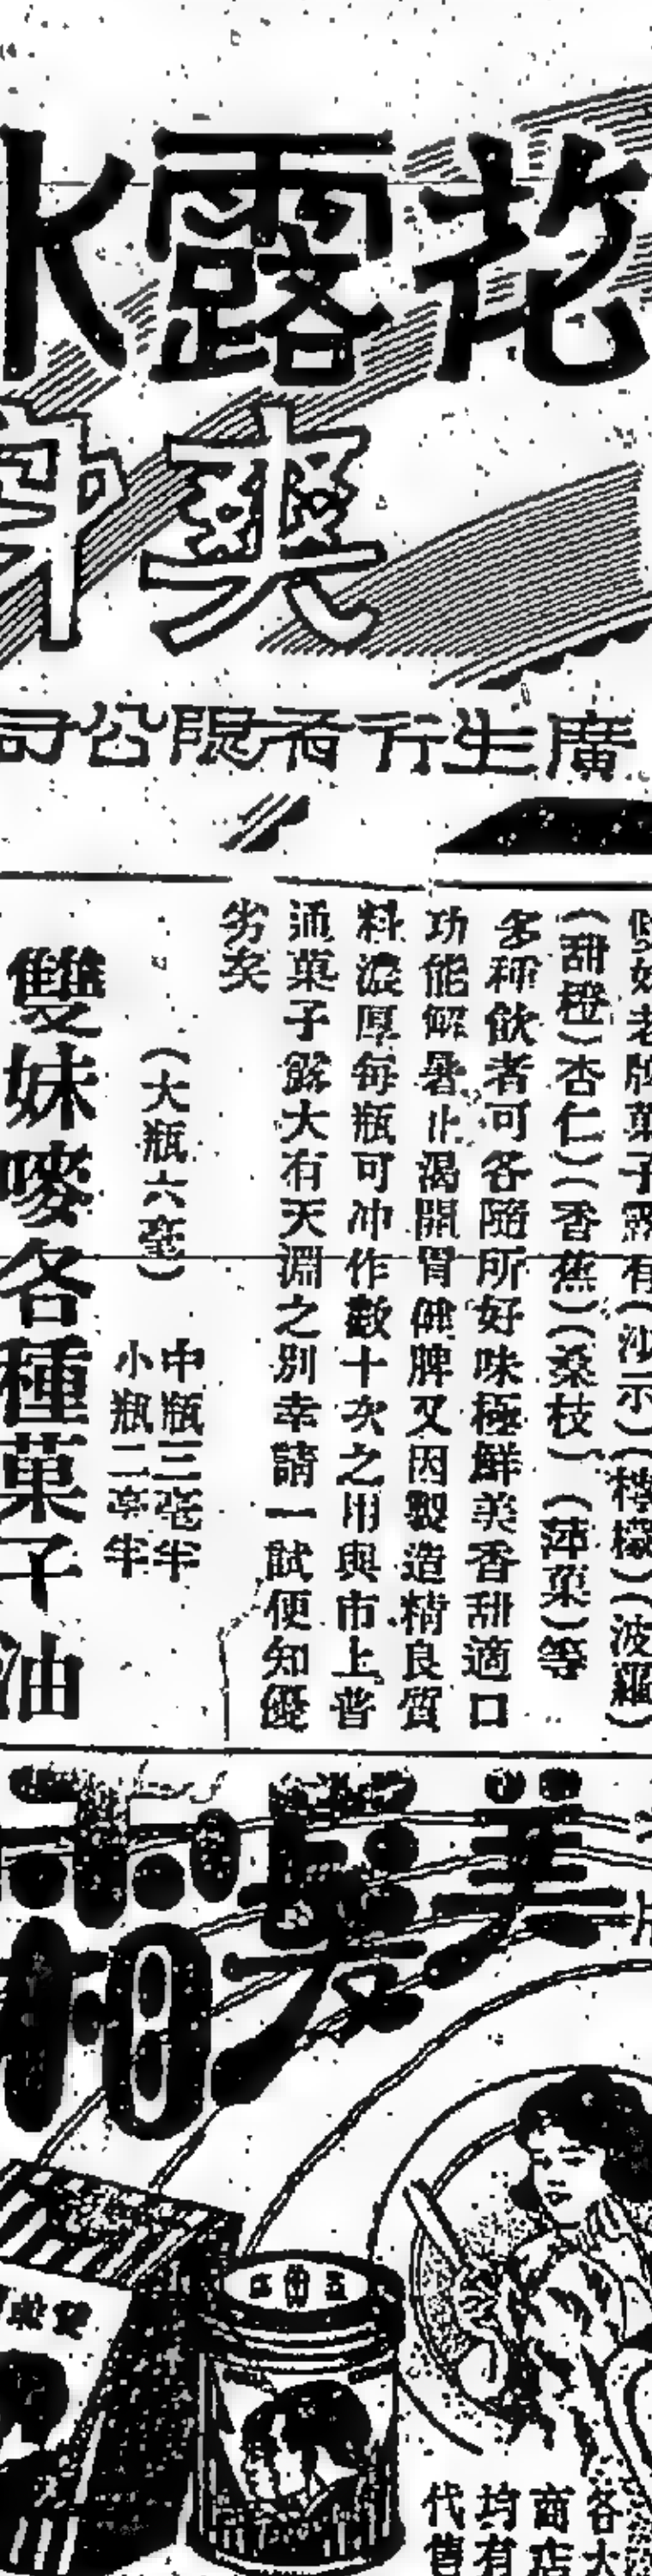 花露水
爽身
廣生行有限公司
妹老牌菓子露有(沙示)(檸檬)(波羅)
(甜橙)(杏仁)(香蕉)(桑枝)(蘋菓)等
多種飲者可各隨所好味極鮮美香甜適口
功能解暑止渴開胃健脾又因製造精良質
料濃厚每瓶可冲作數十次之用與市上普
通菓子露大有天淵之別幸請一試便知優
劣矣
(大瓶六毫)
中瓶三毫半
小瓶二毫半
雙妹嘜各種菓子油
美髮霜
各大
商店
均有
代售